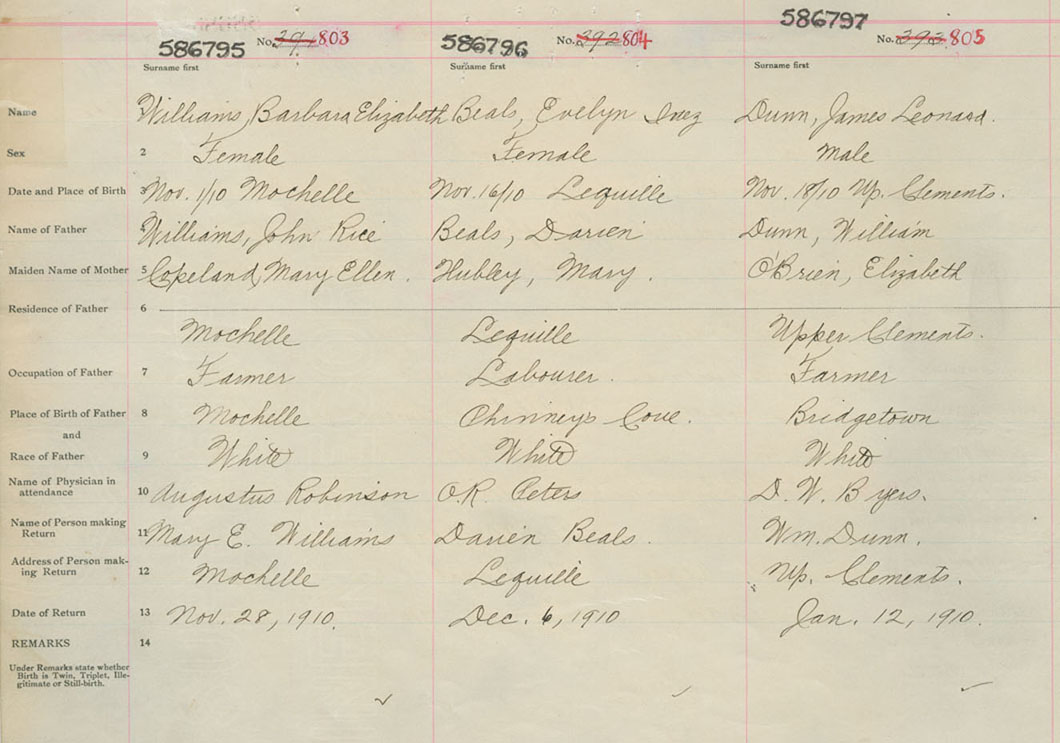 586795 No. 391 803 586796 No. 392 804 586797 No. 393 805
Surname first Surname first Surname first
Name 1 Williams, Barbara Elizabeth Beals, Evelyn Inez Dunn, James Leonard.
Sex 2 Female Female Male
Date and Place of Birth 3 Nov. 1/10 Mochelle Nov. 16/10 Lequille Nov. 18/10 Up. Clements.
Name of Father 4 Williams, John Rice Beals, Darien Dunn, William
Maiden Name of Mother 5 Copeland, Mary Ellen. Hubley, Mary. O'Brien, Elizabeth
Residence of Father 6
Mochelle Lequille Upper Clements.
Occupation of Father 7 Farmer Labourer. Farmer
Place of Birth of Father 8 Mochelle Cove. Bridgetown
and
Race of Father 9 White White White
Name of Physician in
attendance 10 Augustus Robinson O.R. Peters D. W. Byers.
Name of Person making
Return 11 Mary E. Williams Darien Beals. Wm. Dunn.
Address of Person mak-
ing Return 12 Mochelle Lequille Up. Clements.
Date of Return 13 Nov. 28, 1910. Dec. 6, 1910 Jan. 12, 1910.
REMARKS 14
Under Remarks state whether
Birth is Twin, Triplet, Ille-
gitimate or Still-birth.